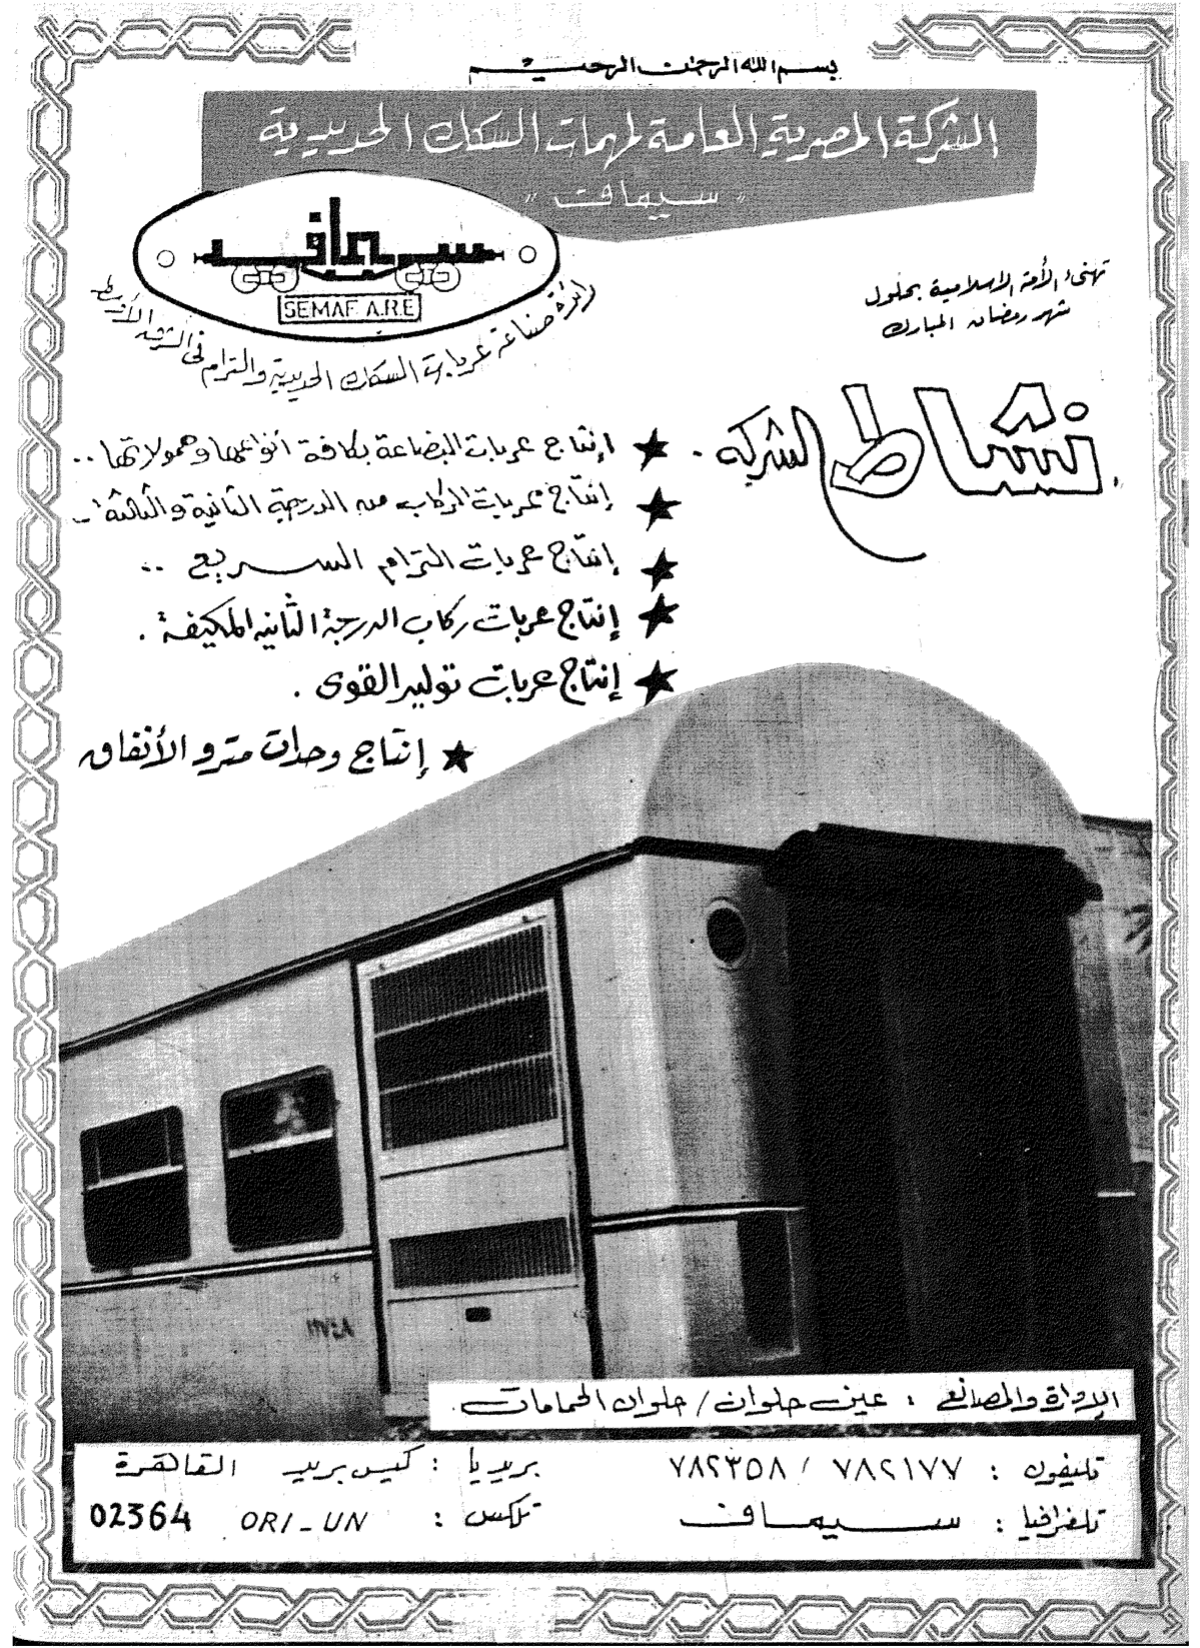 بسم الله الرحمن الرحيم
الشركة المصرية العامة لمهمات السكك الحديدية
"سيماف"
سيماف
SEMAF A.R.E
رائدة صناعة عربات السكك الحديدية والترام فى الشرق الأوسط
تهنىء الأمة الإسلامية بحلول
شهر رمضان المبارك
نشاط الشركة
★ إنتاج عربات البضاعة بكافة أنواعها وحمولاتها ..
★ إنتاج عربات الركاب من الدرجة الثانية والثالثة ..
★ إنتاج عربات الترام السريع ..
★ إنتاج عربات ركاب الدرجة الثانية المكيفة .
★ إنتاج عربات توليد القوى .
★ إنتاج وحدات مترو الأنفاق
الإدارة والمصانع : عين حلوان / حلوان الحمامات .
تليفون : ٧٨٢١٧٧ / ٧٨٢٣٥٨ بريديا : كيس بريد القاهرة
تلغرافيا : سيماف تلكس : ORI_UN 02364